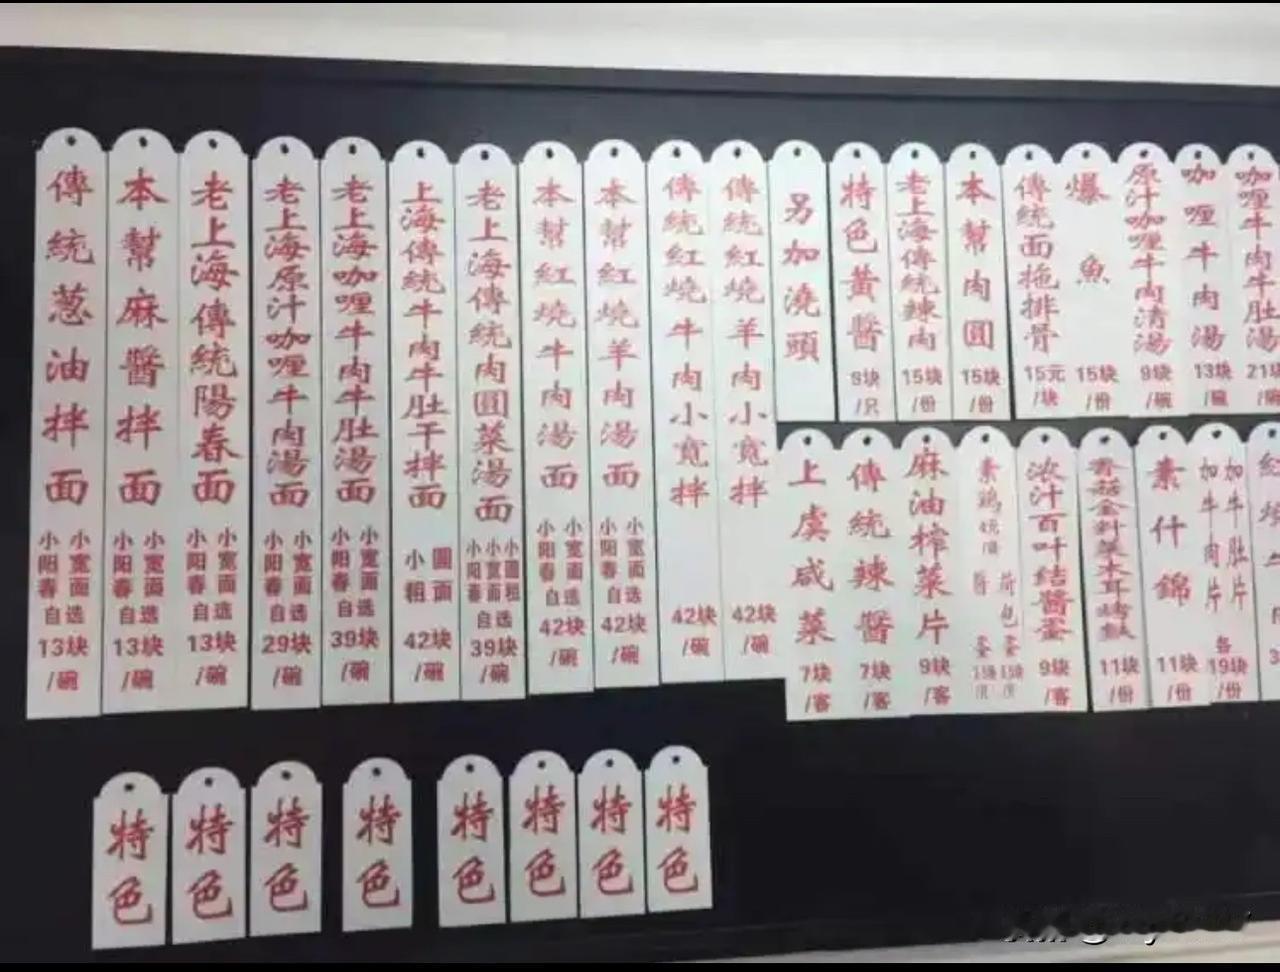 傳統葱油拌面
小阳春 小宽面
自选
13块
/碗
本幫麻醬拌面
小阳春 小宽面
自选
13块
/碗
老上海傳統陽春面
小阳春 小宽面
自选
13块
/碗
老上海原汁咖喱牛肉湯面
小阳春 小宽面
自选
29块
/碗
老上海咖喱牛肉牛肚湯面
小阳春 小宽面
自选
39块
/碗
上海傳統牛肉牛肚干拌面
小粗 圓面
42块
/碗
老上海傳統肉圓菜湯面
小阳春 小宽面 小圓粗
自选
39块
/碗
本幫紅燒牛肉湯面
小阳春 小宽面
自选
42块
/碗
本幫紅燒羊肉湯面
小阳春 小宽面
自选
42块
/碗
傳統紅燒牛肉小寬拌
42块
/碗
傳統紅燒羊肉小寬拌
42块
/碗
另加澆頭
特色黃醬
9块
/只
老上海傳統辣肉
15块
/份
本幫肉圓
15块
/份
傳統面拖排骨
15元
/块
爆魚
15块
/份
原汁咖喱牛肉清湯
9块
/碗
咖喱牛肉湯
13块
/碗
咖喱牛肉牛肚湯
21块
/碗
上虞咸菜
7块
/客
傳統辣醬
7块
/客
麻油榨菜片
9块
/客
素鸡
荷包蛋
浓汁百叶结醬蛋
9块
/客
香菇金針菜木耳烤麩
11块
/份
素什錦
11块
/份
加牛肉片 加牛肚片
各
19块
/份
特色
特色
特色
特色
特色
特色
特色
特色